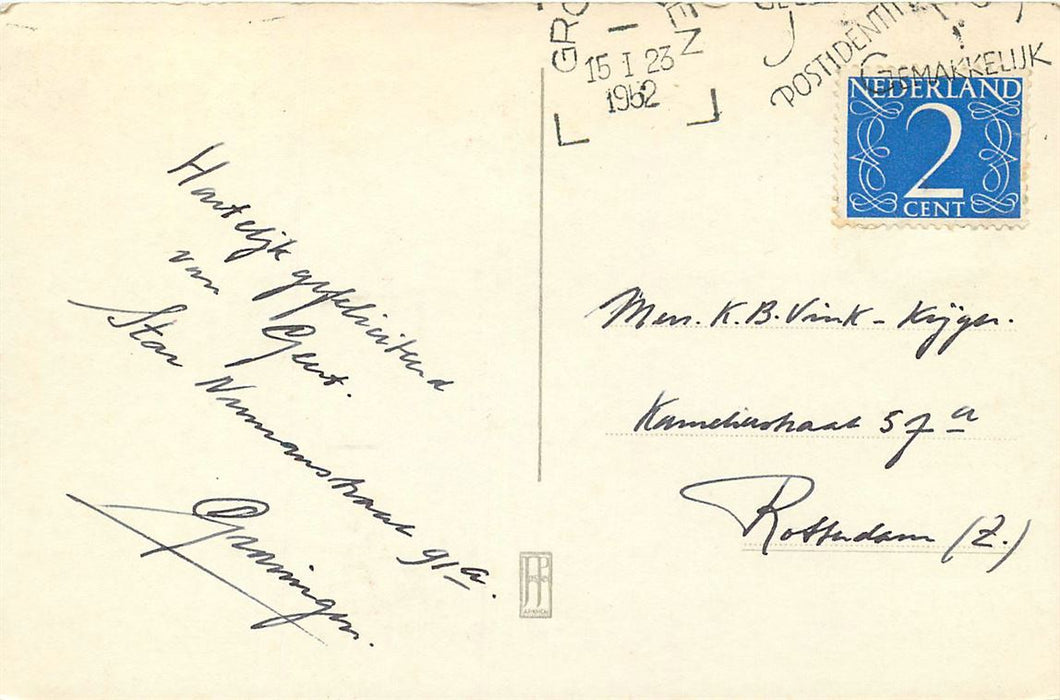 GRO
NEN
15 I 23
1952
POSTIDENTIT
GEMAKKELIJK
NEDERLAND
2
CENT
Hartelijk gefeliciteerd
van Gert.
Star Numanstraat 91a.
Groningen.
Mevr. K.B. Vink - Krijger.
Kameliastraat 57a
Rotterdam (Z.)